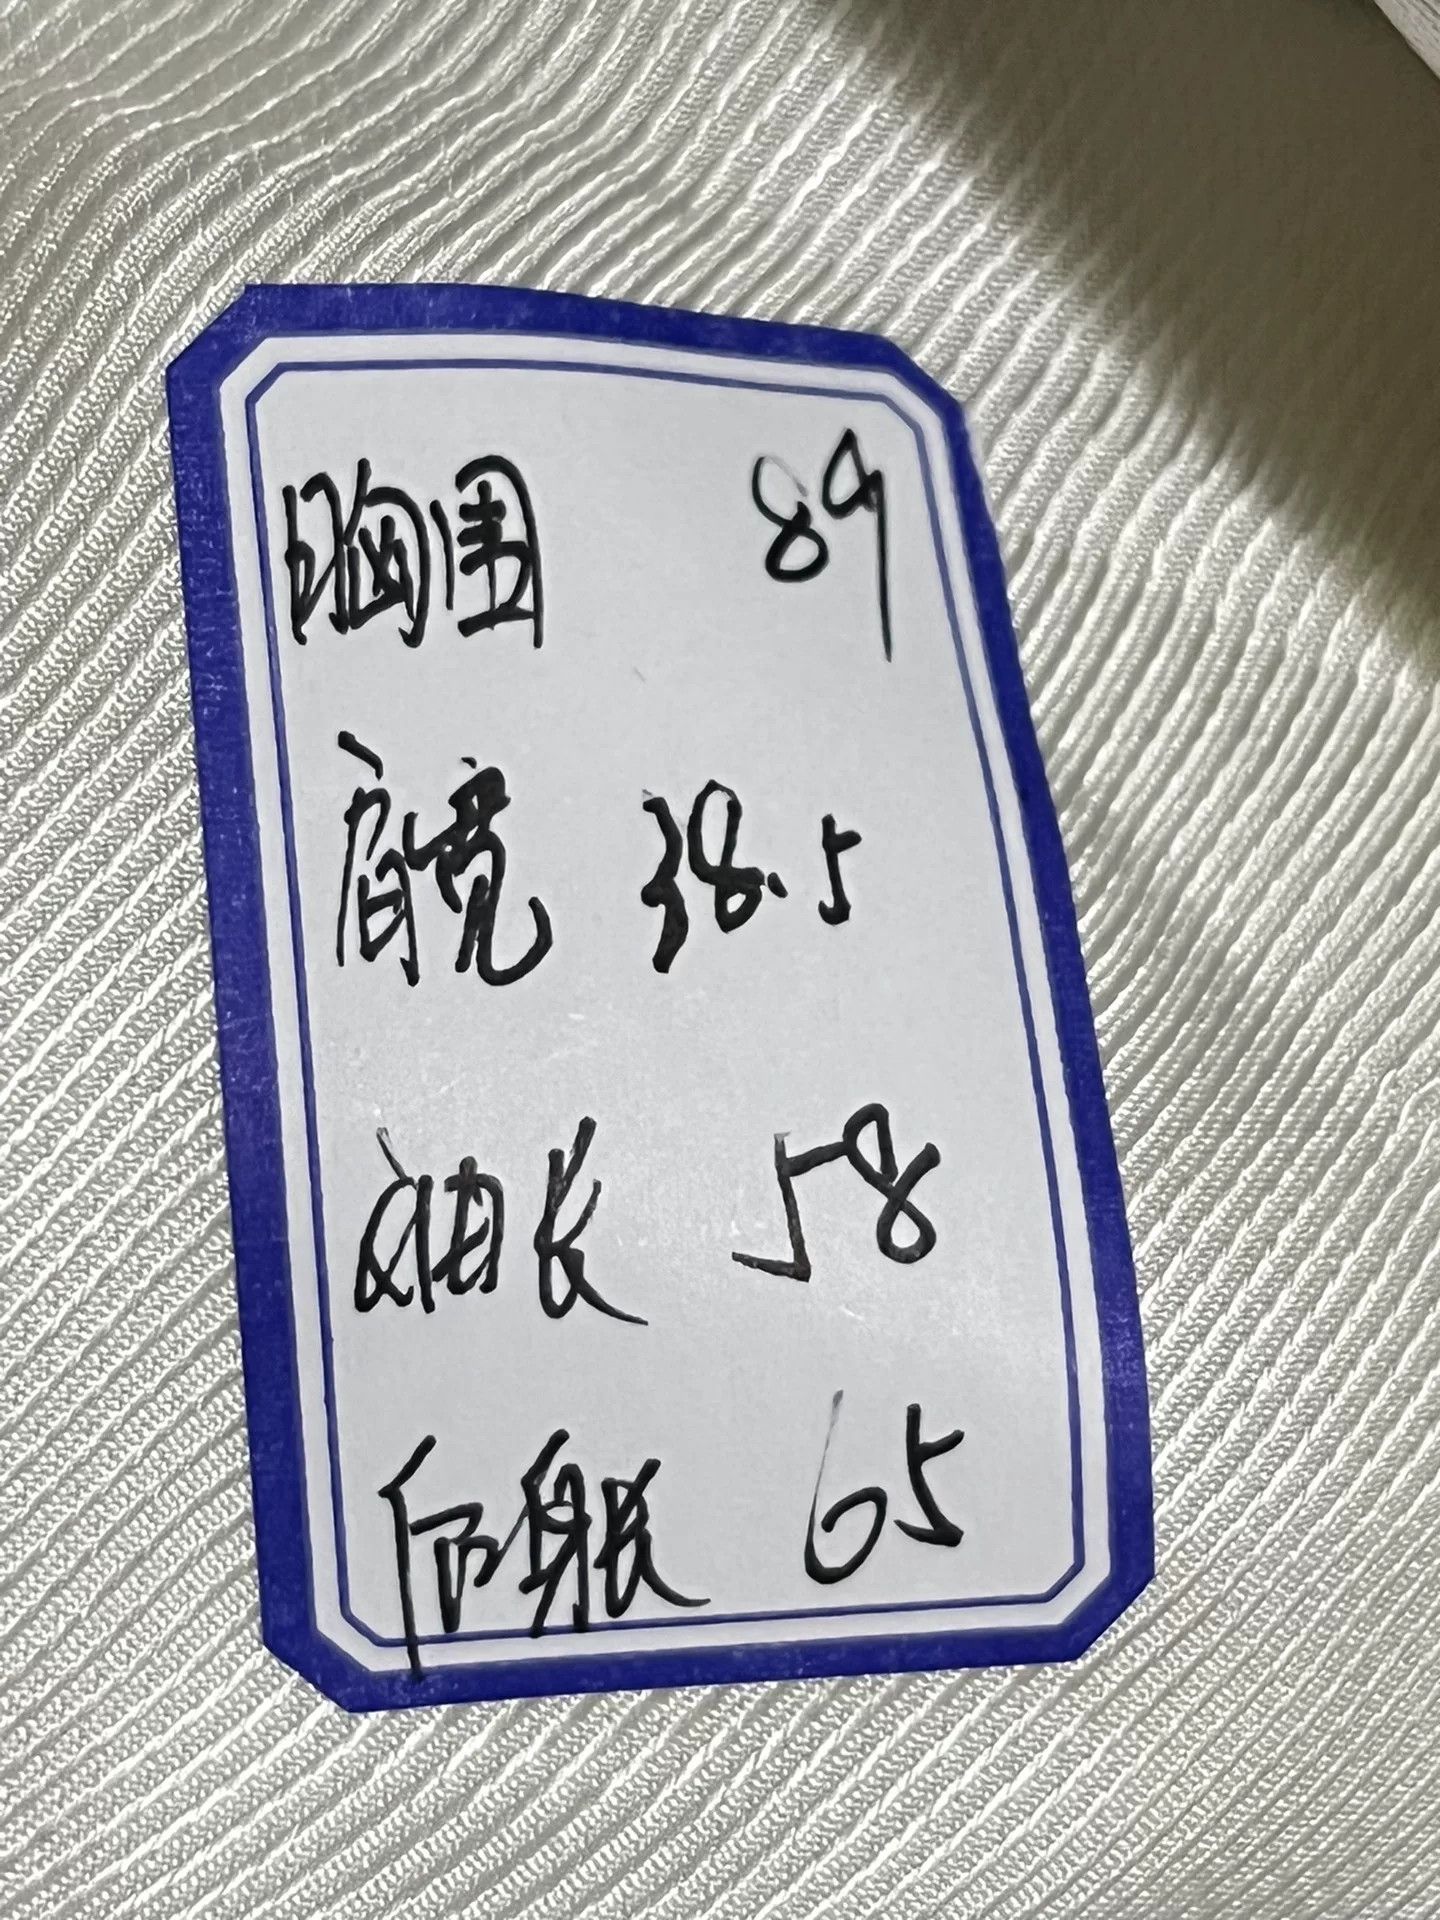 胸围 89
肩宽 38.5
袖长 58
后身长 65